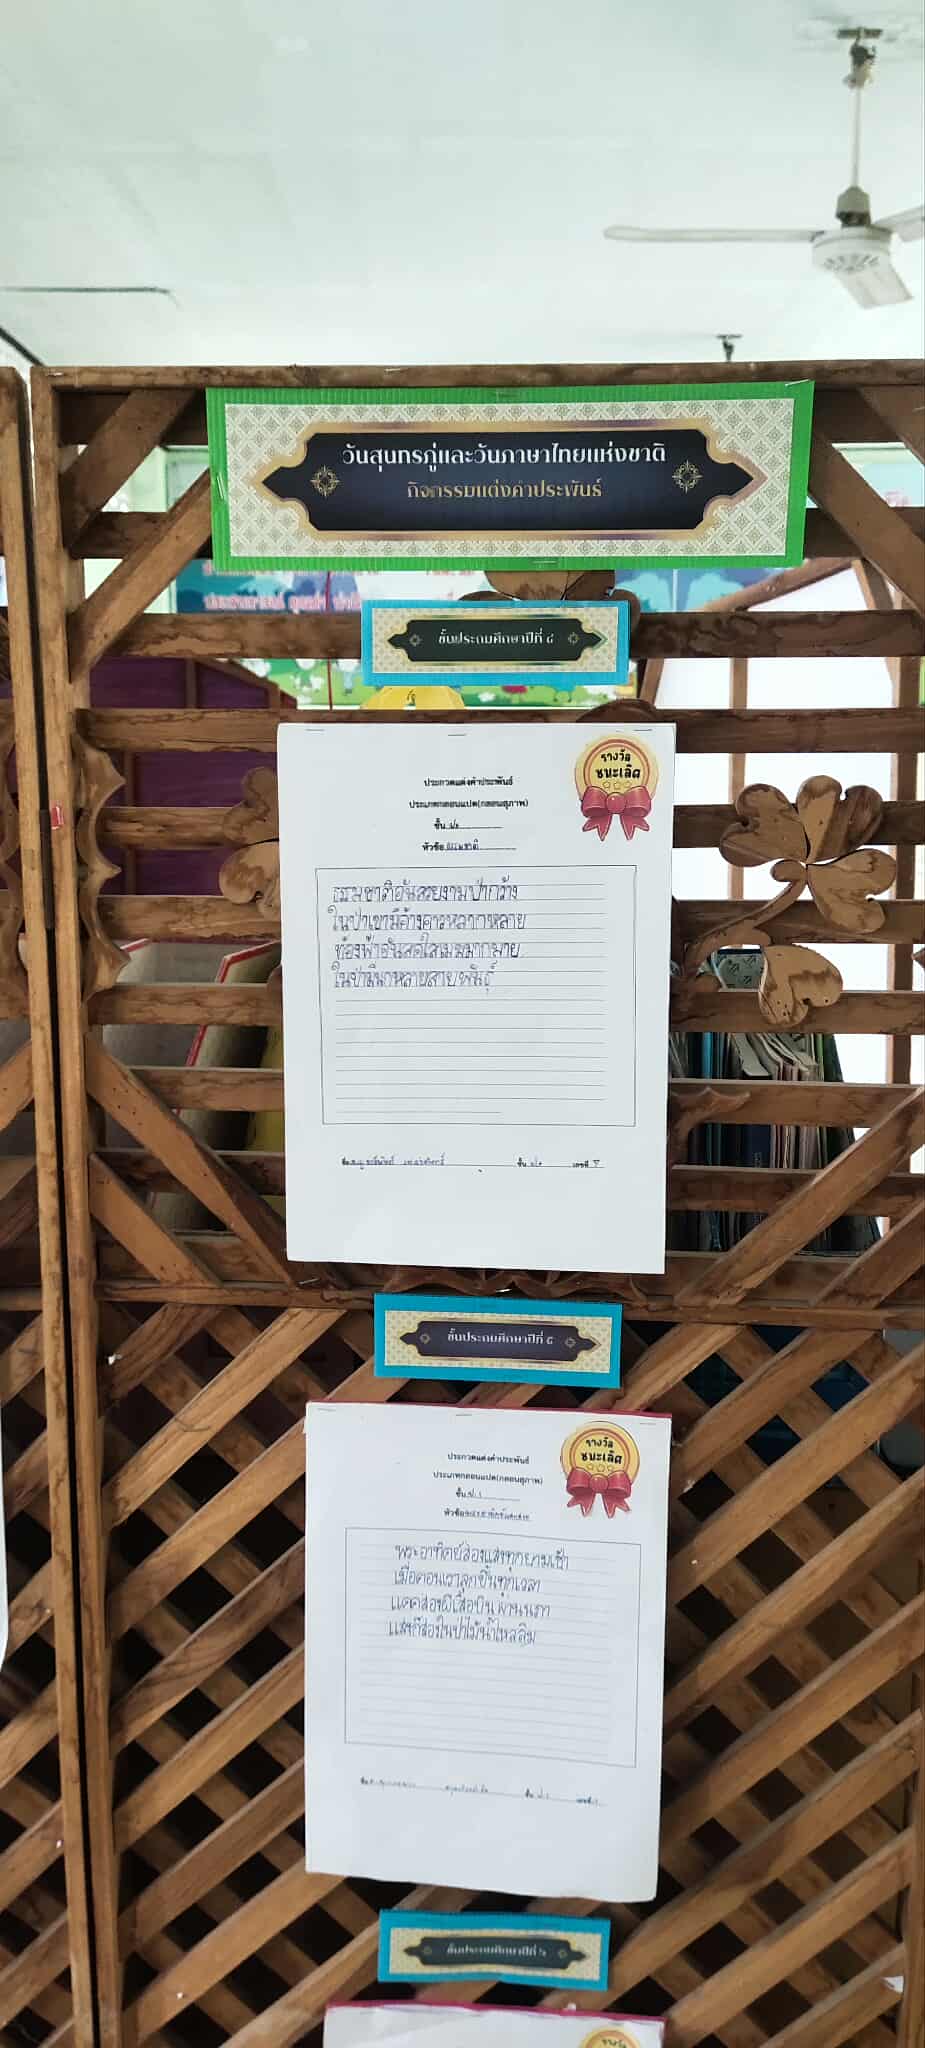 วันสุนทรภู่และวันภาษาไทยแห่งชาติ
กิจกรรมแต่งคำประพันธ์
ชั้นประถมศึกษาปีที่ ๔
รางวัล
ชนะเลิศ
ประกวดแต่งคำประพันธ์
ประเภทกลอนแปด(กลอนสุภาพ)
ชั้น
หัวข้อ ธรรมชาติ
ธรรมชาติอันสวยงามป่ากว้าง
ในป่าเขามีค้างคาวหลากหลาย
ท้องฟ้าอันสดใสเมฆมากมาย
ในป่ามีนกหลายสายพันธุ์
ชื่อ ชั้น เลขที่
ชั้นประถมศึกษาปีที่ ๕
รางวัล
ชนะเลิศ
ประกวดแต่งคำประพันธ์
ประเภทกลอนแปด(กลอนสุภาพ)
ชั้น
หัวข้อ
พระอาทิตย์ส่องแสงทุกยามเช้า
เมื่อตอนเราลุกขึ้นทุกเวลา
แดดส่องผีเสื้อบินผ่านนภา
แสงก็ส่องในป่าไม้น้ำไหลลิน
ชื่อ ชั้น เลขที่
ชั้นประถมศึกษาปีที่ ๖
รางวัล